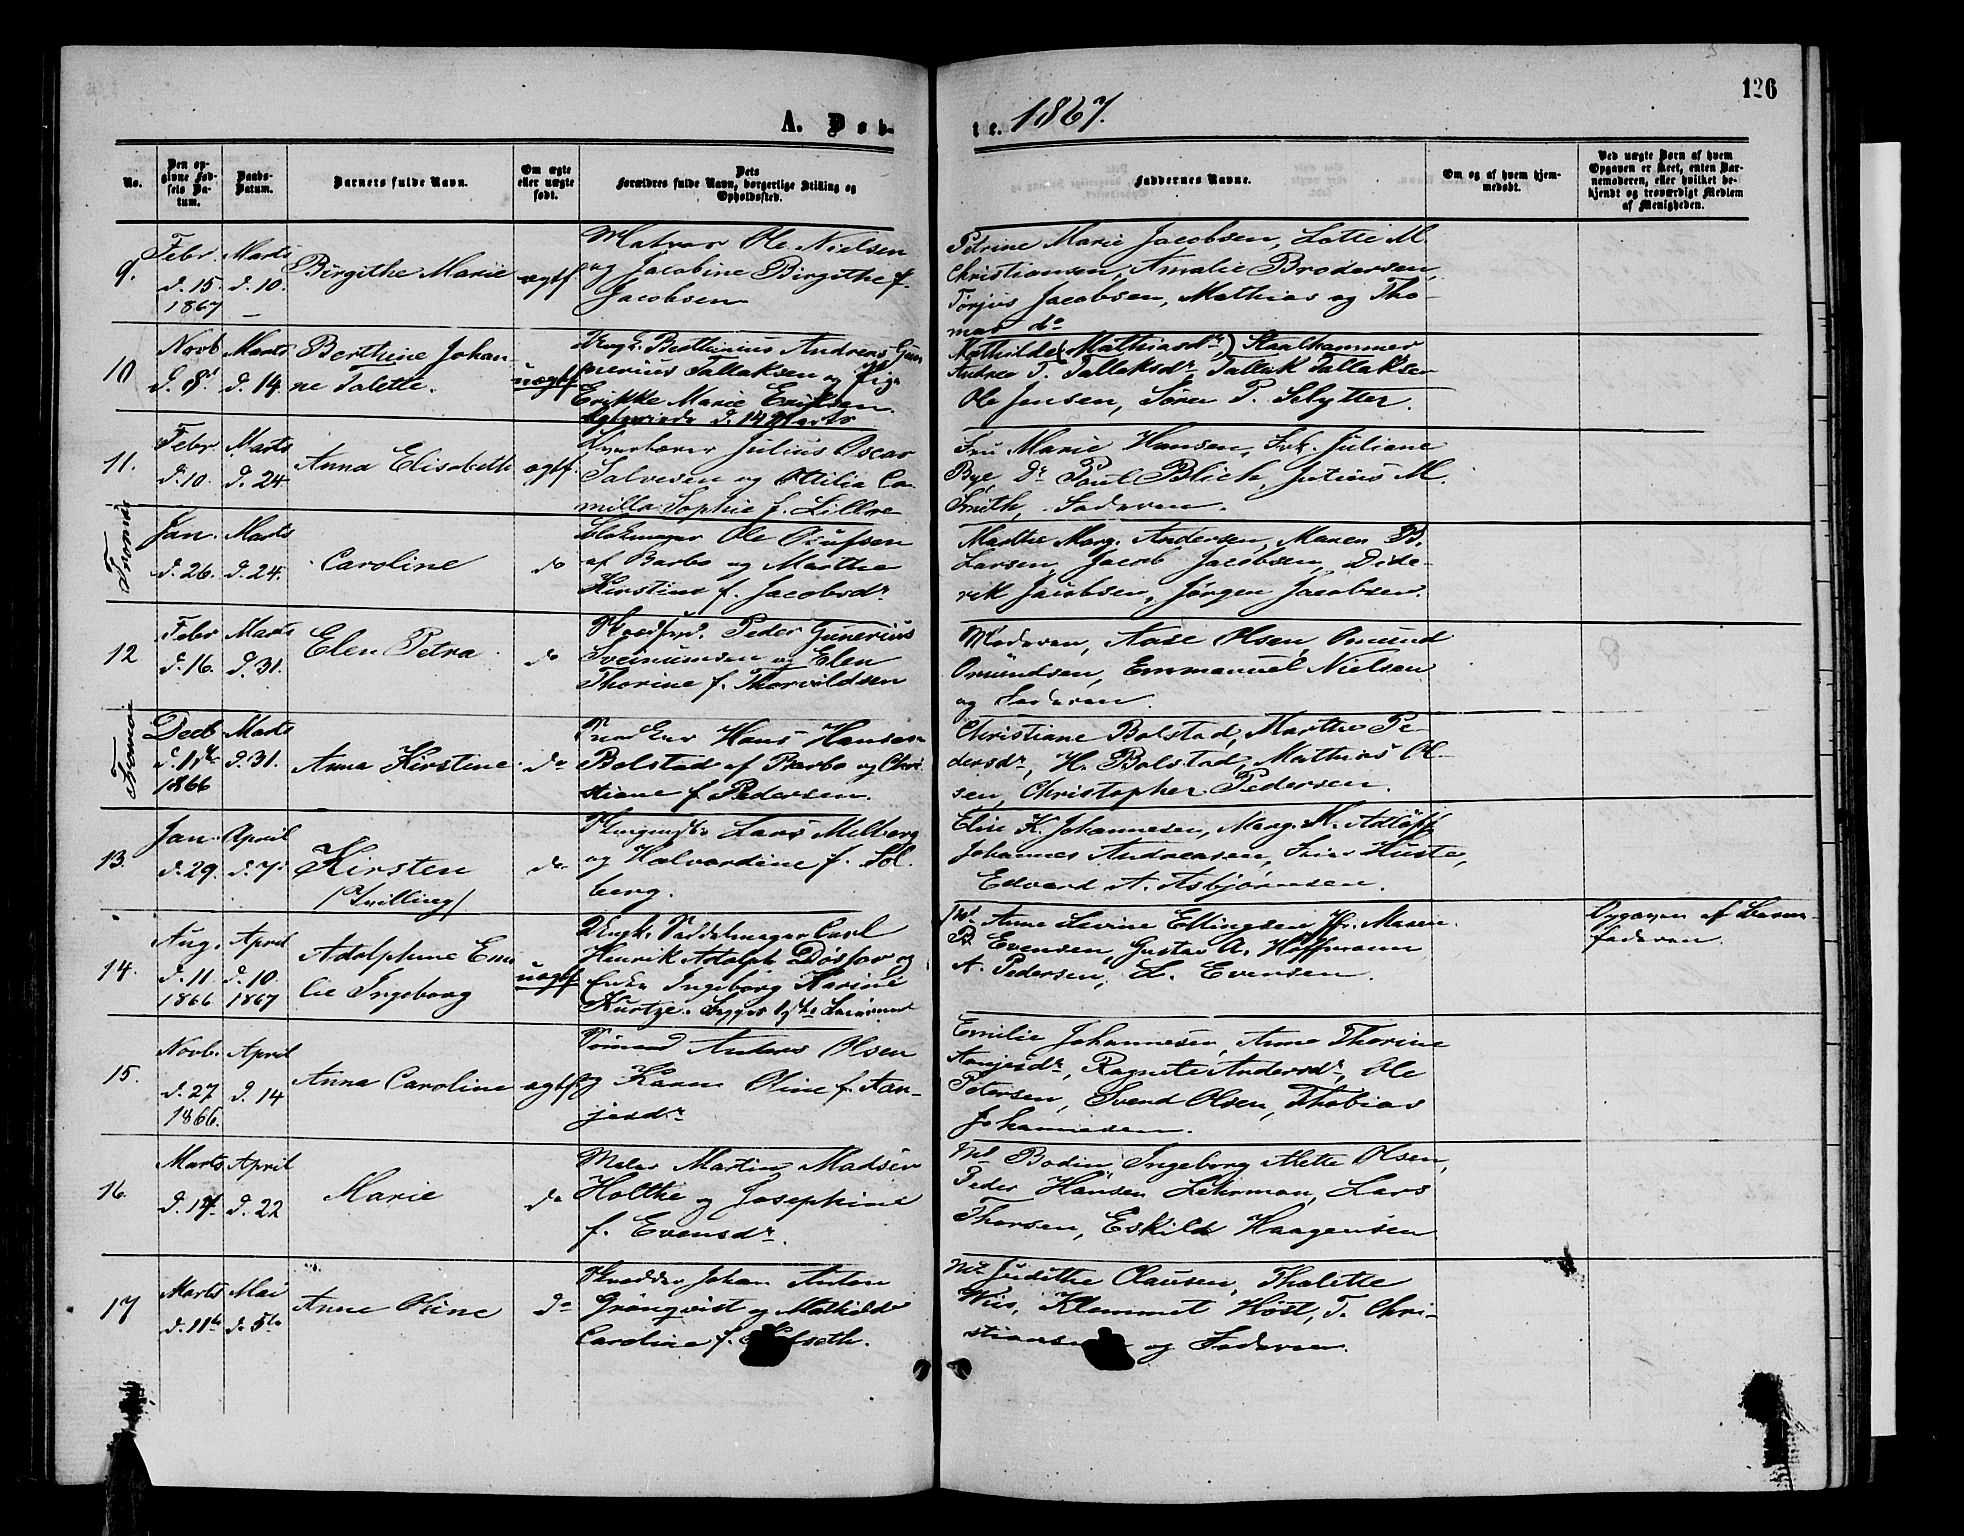 126
A. Døb-
te. 1867.
No.
Den op-
givne Fød-
sels Da-
tum.
Daabs-
Datum.
Barnets fulde Navn.
Om ægte
eller uægte
født.
Dets
Forældres fulde Navn, borgerlige Stilling og
Opholdssted.
Faddernes Navne.
Om og af hvem hjem-
medøbt.
Ved uægte Børn af hvem
Opgaven er skeet, enten Bar-
nemoderen, eller hvilket be-
kjendt og troværdigt Medlem
af Menigheden.
9.
Febr
d. 15.
1867
Marts
d. 10.
Birgithe Marie
ægtf.
Matros Ole Nielsen
og Jacobine Birgithe f.
Jacobsen
Petrine Marie Jacobsen, Lotte M.
Christiansen, Amalie Brodersen,
Torjus Jacobsen, Mathias og Tho-
mas do
10
Novb
d. 8d
Marts
d. 14.
Berthine Johan
ne Talette.
uægtf
Ungk. Berthinius Andreas Gun
nerius Tallaksen og Pige
Erikke Marie Eriksen.
d. 14 Marts
Mathilde (Mathiasdr) Staalhammer
Andrea T. Tallaksdr, Tallak Tallaksen
Ole Jensen, Søren P. Slytter.
11.
Febr
d. 10.
Marts
d. 24.
Anna Elisabeth
ægtf.
Julius Oscar
Salvesen og Otilia Ca-
milla Sophie f. Lillee
Fru Marie Hansen, Frk. Juliane
Bye, Dr Poul Blich, Julius M.
Smith, Faderen.
Tromøe
Jan.
d. 26.
Marts
d. 24.
Caroline
do
Blokmager Ole Olufsen
af Barbo og Marthe
Kirstine f. Jacobsdr
Marthe Marg. Andersen, Maren B.
Larsen, Jacob Jacobsen, Dide-
rik Jacobsen, Jørgen Jacobsen.
12
Febr
d. 16.
Marts
d. 31.
Elen Petra
do
Peder Gunerius
Sveinumsen og Elen
Thorine f. Thorvildsen
Moderen, Aase Olsen, Omund
Omundsen, Emmanuel Nielsen
og Faderen.
Tromøe
Decb
1866
Marts
d. 31.
Anna Kirstine
do
Hans Hansen
Bolstad af Barbo og Chri
stiane f. Pedersen.
Christiane Bolstad, Marthe Pe-
dersdr, H. Bolstad, Mathias Ol-
sen, Christopher Pedersen.
13.
Jan.
d. 29.
April
d. 7.
Kirsten
(Tvilling)
do
Lars Melberg
og Halvardine f. Sol-
berg.
Elise K. Johannesen, Marg. K.
Johannes Andreasen,
Edvard A. Asbjørnsen.
14.
Aug.
d. 11
1866
April
d. 10.
1867
Adolphine Emi
lie Ingeborg
uægtf
Ungk. Saddelmager Carl
Henrik Adolph og
Enke Ingeborg Karine
Kurtze.
Anne Levine Ellingsen Jfr. Maren
B. Evensen, Gustav A. Hoffmann
A. Pedersen, L. Evensen.
Opgaven af Barne-
faderen.
15.
Novb.
d. 27
1866.
April
d. 14
Anna Caroline
ægtf.
Tømmd Anders Olsen
og Karen Oline f. Aan-
jesdr
Emilie Johannesen, Anne Thorine
Aanjesdr, Ragnete Andersdr, Ole
Petersen, Svend Olsen, Thobias
Johannesen.
16.
Marts
d. 14
April
d. 22
Marie
do
Maler Martin Madsen
Holthe og Josephine
f. Evensdr.
Md Bodin, Ingeborg Alette Olsen,
Peder Hansen Lehrman, Lars
Thorsen, Eskild Haagensen
17
Marts
d. 11te
Mai
d. 5te
Anne Oline
do
Skrædder Johan Anton
Grönqvist og Mathilde
Caroline f.
Md Judithe Clausen, Thalette
Wiis, Klemmet Høst, T. Chri-
stiansen og Faderen.